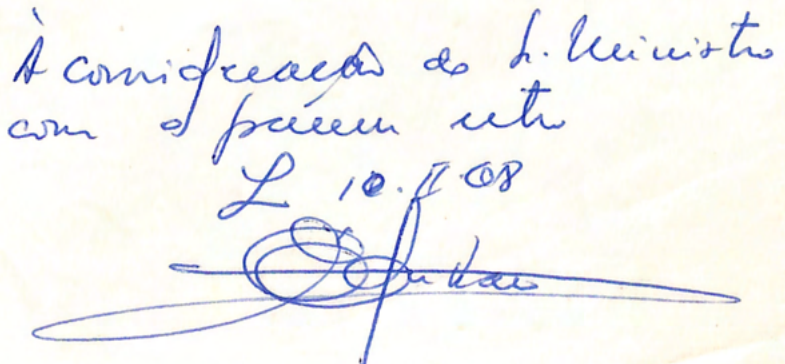 À consideração do Sr. Ministro
com o parecer retro
L 10.II.08